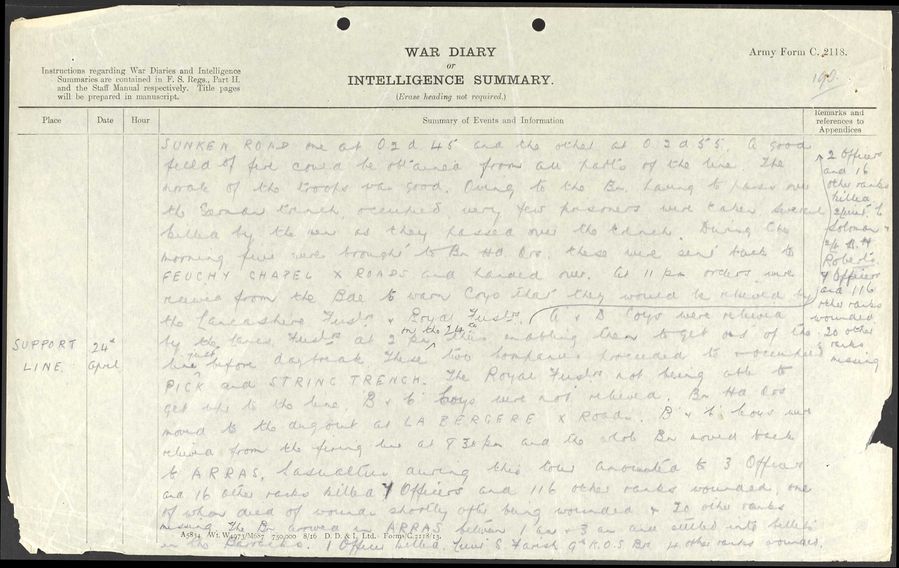 WAR DIARY
or
INTELLIGENCE SUMMARY.
(Erase heading not required.)
Army Form C. 2118.
190.
Instructions regarding War Diaries and Intelligence
Summaries are contained in F. S. Regs., Part II.
and the Staff Manual respectively. Title pages
will be prepared in manuscript.
Place
Date
Hour
Summary of Events and Information
Remarks and
references to
Appendices
SUNKEN ROAD one at O2d 45 and the other at O.2d 55. A good
field of fire could be obtained from all parts of the line. The
morale of the troops was good. Owing to the Bn. having to pass over
the German trench, occupied very few prisoners were taken several
killed by the men as they passed over the trench. During the
morning five were brought to Bn Hd Qrs. these were sent back to
FEUCHY CHAPEL X ROADS and handed over. At 11 pm orders were
received from the Bde to warn Coys that they would be relieved by
the Lancashire Fusrs & Royal Fusrs. A & D Coys were relieved
by the Lancs. Fusrs at 2 on the 24th thus enabling them to get out of the
line just before daybreak. These two companies proceeded to
PICK and STRING TRENCH. The Royal Fusrs not being able to
get up to the line, B & C Coys were not relieved. Bn Hd Qrs
moved to the dugout at LA BERGERE X Roads. B & C Coys were
relieved from the firing line at 9 30 pm and the whole Bn moved back
to ARRAS. Casualties during this tour amounted to 3 Officers
and 16 other ranks killed 7 Officers and 116 other ranks wounded, one
of whom died of wounds shortly after being wounded & 20 other ranks
missing. The Bn arrived in ARRAS between 1 am & 3 am and settled into billets
in the Barracks. 1 Officer killed. S. 9th K.O.S.B. 4 other ranks wounded.
SUPPORT
LINE.
24th
April
2 Officers
and 16
other ranks
killed
Solomon &
Roberts.
7 Officers
and 116
other ranks
wounded
20 other
ranks
missing
A5834 Wt. W4973/M687 750,000 8/16 D. D. & L. Ltd. Forms/C.2118/13.